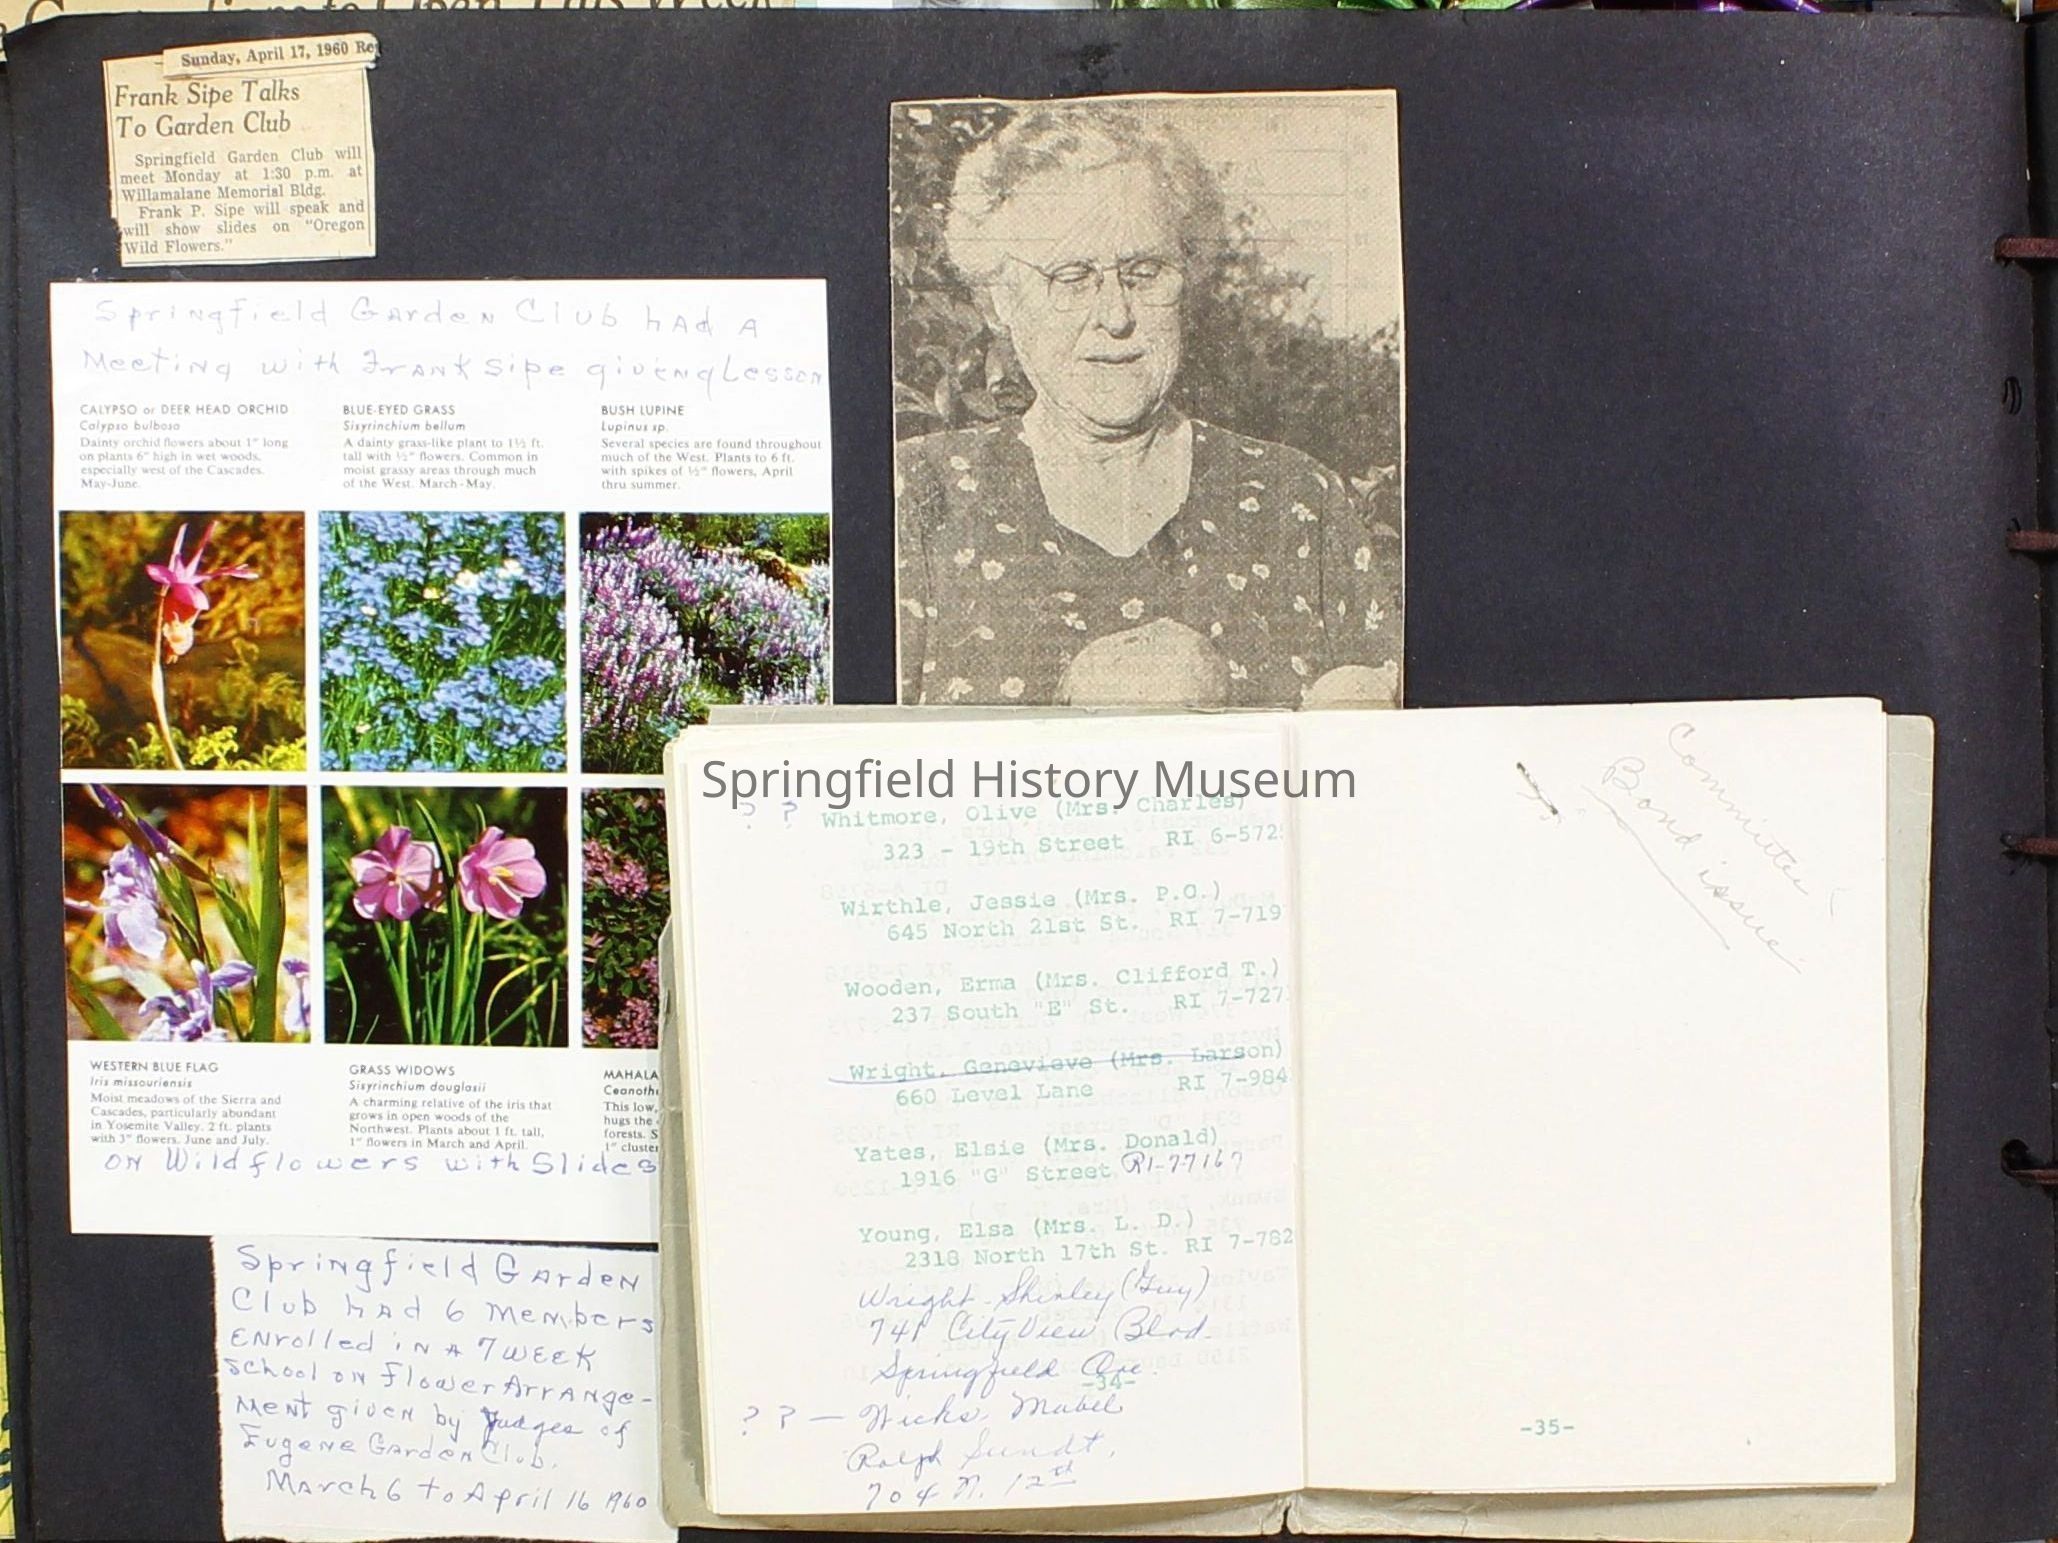 Sunday, April 17, 1960 Re
Frank Sipe Talks
To Garden Club
Springfield Garden Club will
meet Monday at 1:30 p.m. at
Willamalane Memorial Bldg.
Frank P. Sipe will speak and
will show slides on "Oregon
Wild Flowers."
Springfield Garden Club had a
Meeting with Frank Sipe giving Lesson
CALYPSO or DEER HEAD ORCHID
Calypso bulbosa
Dainty orchid flowers about 1" long
on plants 6" high in wet woods,
especially west of the Cascades.
May-June.
BLUE-EYED GRASS
Sisyrinchium bellum
A dainty grass-like plant to 1½ ft.
tall with ½" flowers. Common in
moist grassy areas through much
of the West. March-May.
BUSH LUPINE
Lupinus sp.
Several species are found throughout
much of the West. Plants to 6 ft.
with spikes of ½" flowers, April
thru summer.
WESTERN BLUE FLAG
Iris missouriensis
Moist meadows of the Sierra and
Cascades, particularly abundant
in Yosemite Valley. 2 ft. plants
with 3" flowers. June and July.
GRASS WIDOWS
Sisyrinchium douglasii
A charming relative of the iris that
grows in open woods of the
Northwest. Plants about 1 ft. tall,
1" flowers in March and April.
MAHALA
Ceanoth
This low,
hugs the
forests. S
1" cluster
on Wildflowers with Slides
Springfield Garden
Club had 6 Members
Enrolled in a 7 week
School on Flower Arrange-
ment given by Judges of
Eugene Garden Club.
March 6 to April 16 1960
Springfield History Museum
? ? Whitmore, Olive (Mrs. Charles)
323 - 19th Street RI 6-572
Wirthle, Jessie (Mrs. P.O.)
645 North 21st St. RI 7-719
Wooden, Erma (Mrs. Clifford T.)
237 South "E" St. RI 7-727
Wright, Genevieve (Mrs. Larson)
660 Level Lane RI 7-984
Yates, Elsie (Mrs. Donald)
1916 "G" Street RI-7-7167
Young, Elsa (Mrs. L. D.)
2318 North 17th St. RI 7-782
Wright - Shirley (Guy)
741 City View Blvd.
Springfield Ore.
-34-
? ? — Wicks, Mabel
Ralph Sundt,
704 N. 12th
Committee
Bond issue
-35-